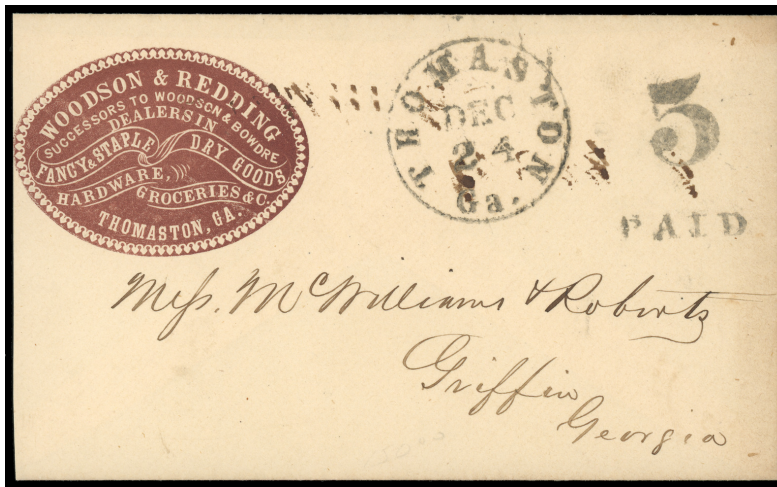 WOODSON & REDDING
SUCCESSORS TO WOODSON & BOWDRE
DEALERS IN
FANCY & STAPLE DRY GOODS
HARDWARE,
GROCERIES & C.
THOMASTON, GA.
THOMASTON
DEC
24
Ga.
5
PAID
Mess. McWilliams & Roberts
Griffin
Georgia